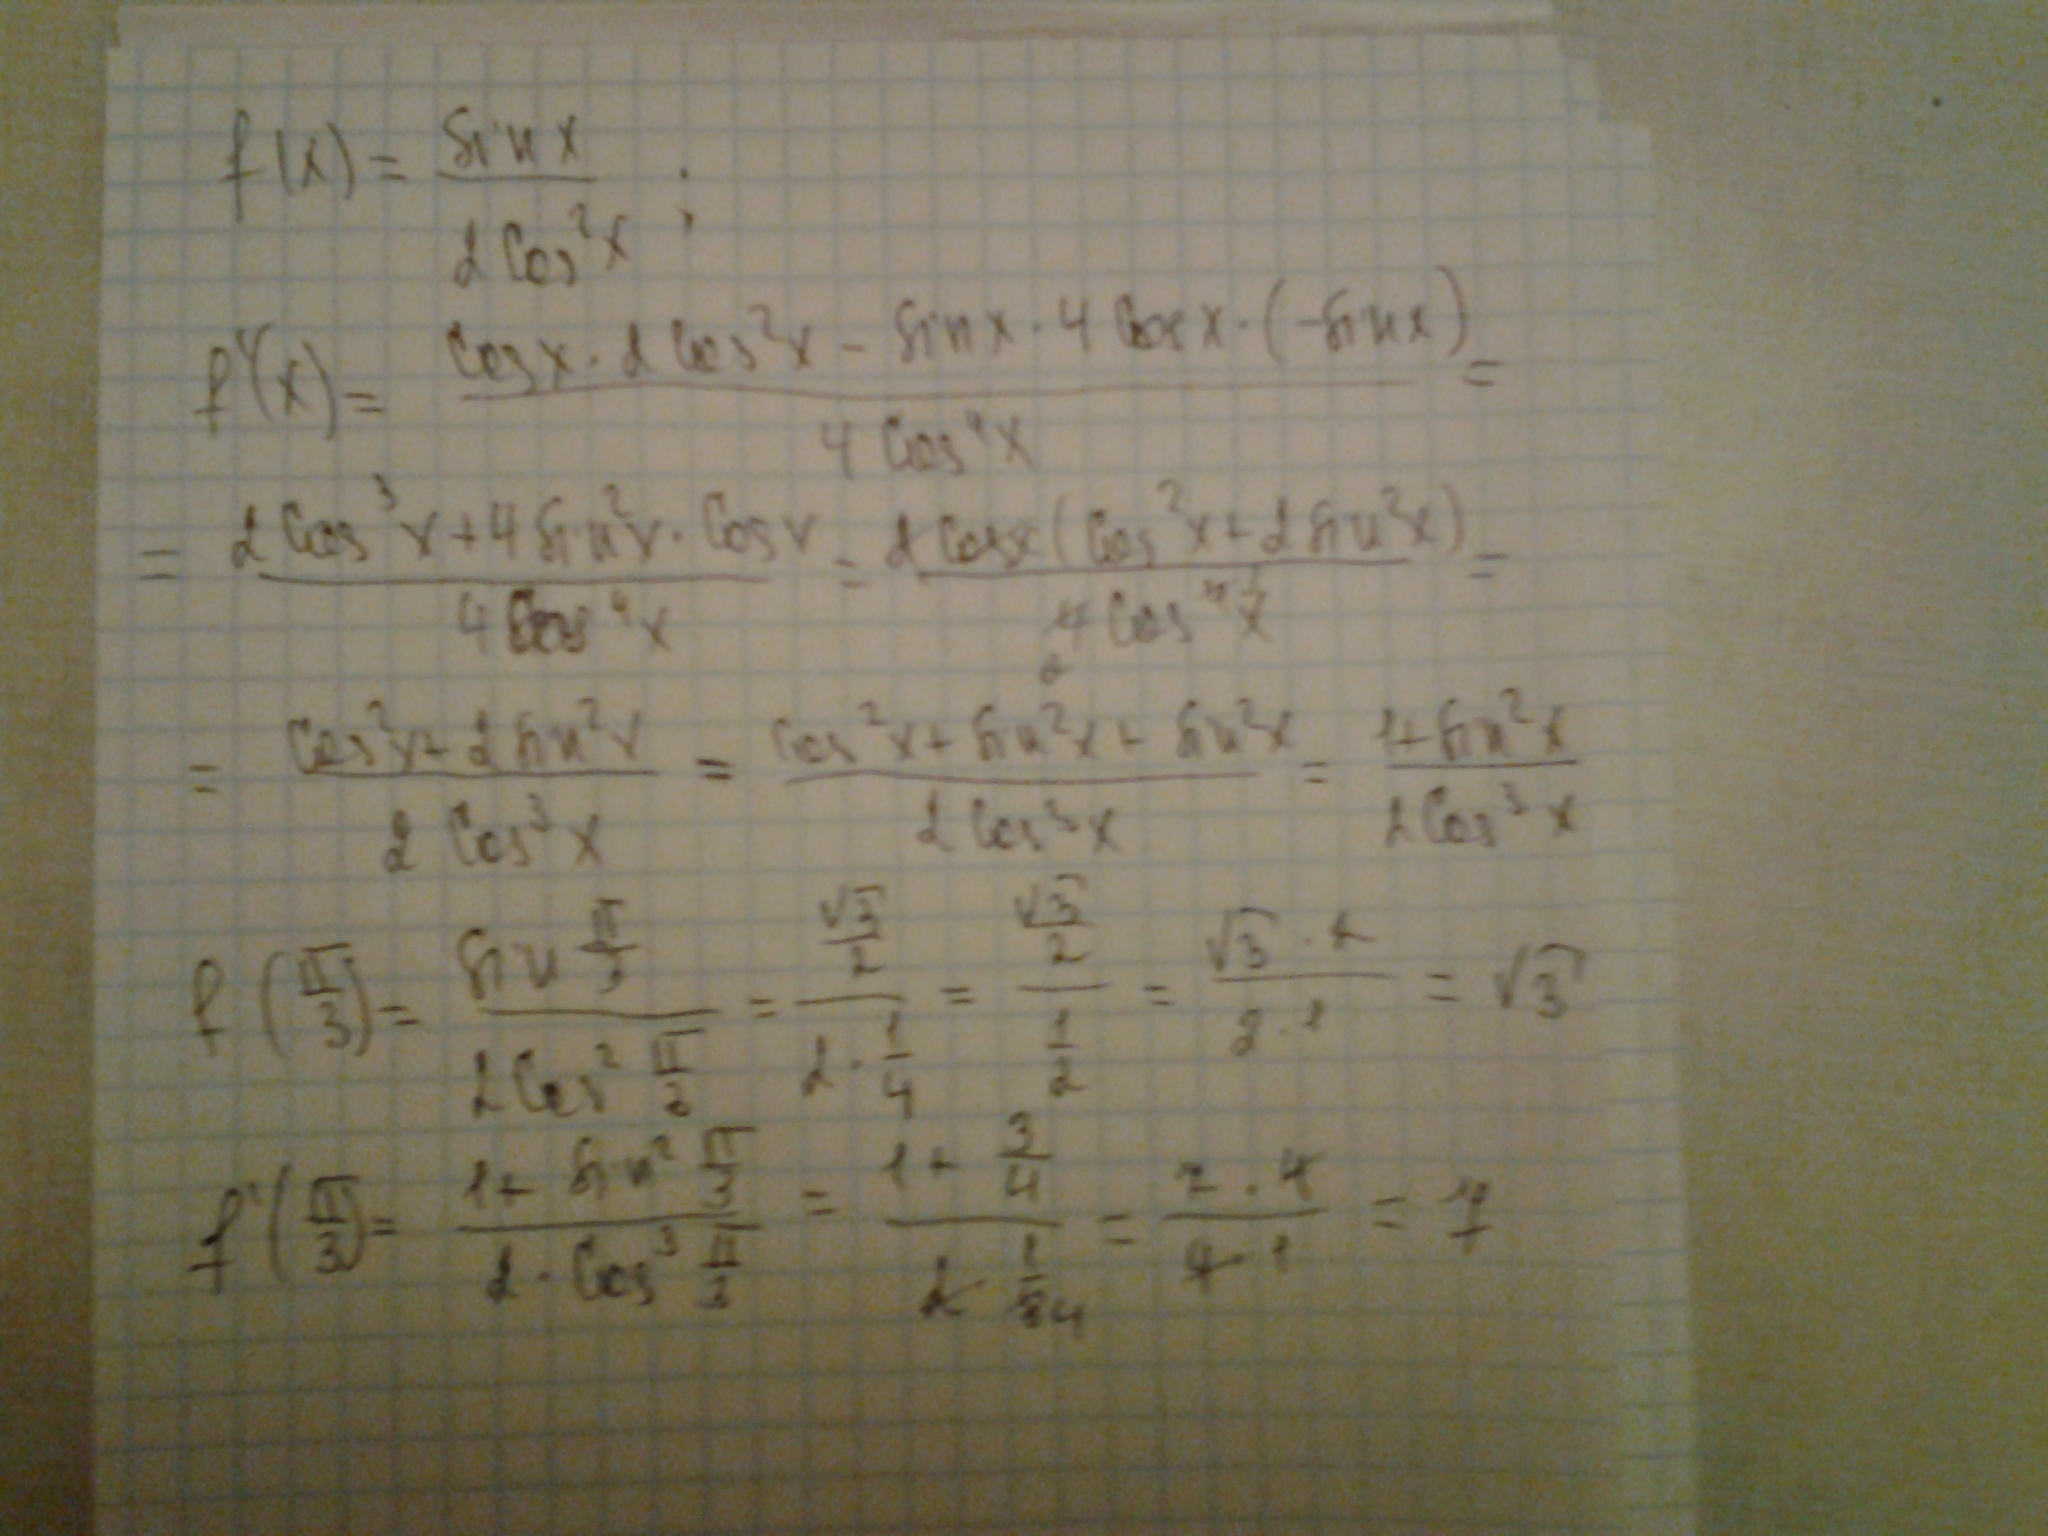 f(x) = sin x / 2 cos²x ;
f'(x) = cos x · 2 cos²x - sin x · 4 cos x · (-sin x) / 4 cos⁴x =
= 2 cos³x + 4 sin²x · cos x / 4 cos⁴x = 2 cos x (cos²x + 2 sin²x) / 4 cos⁴x =
= cos²x + 2 sin²x / 2 cos³x = cos²x + sin²x + sin²x / 2 cos³x = 1 + sin²x / 2 cos³x
f(π/3) = sin π/3 / 2 cos² π/3 = √3/2 / 2 · 1/4 = √3/2 / 1/2 = √3 · 2 / 2 · 1 = √3
f'(π/3) = 1 + sin² π/3 / 2 · cos³ π/3 = 1 + 3/4 / 2 · 1/8 4 = 7 · 4 / 4 · 1 = 7